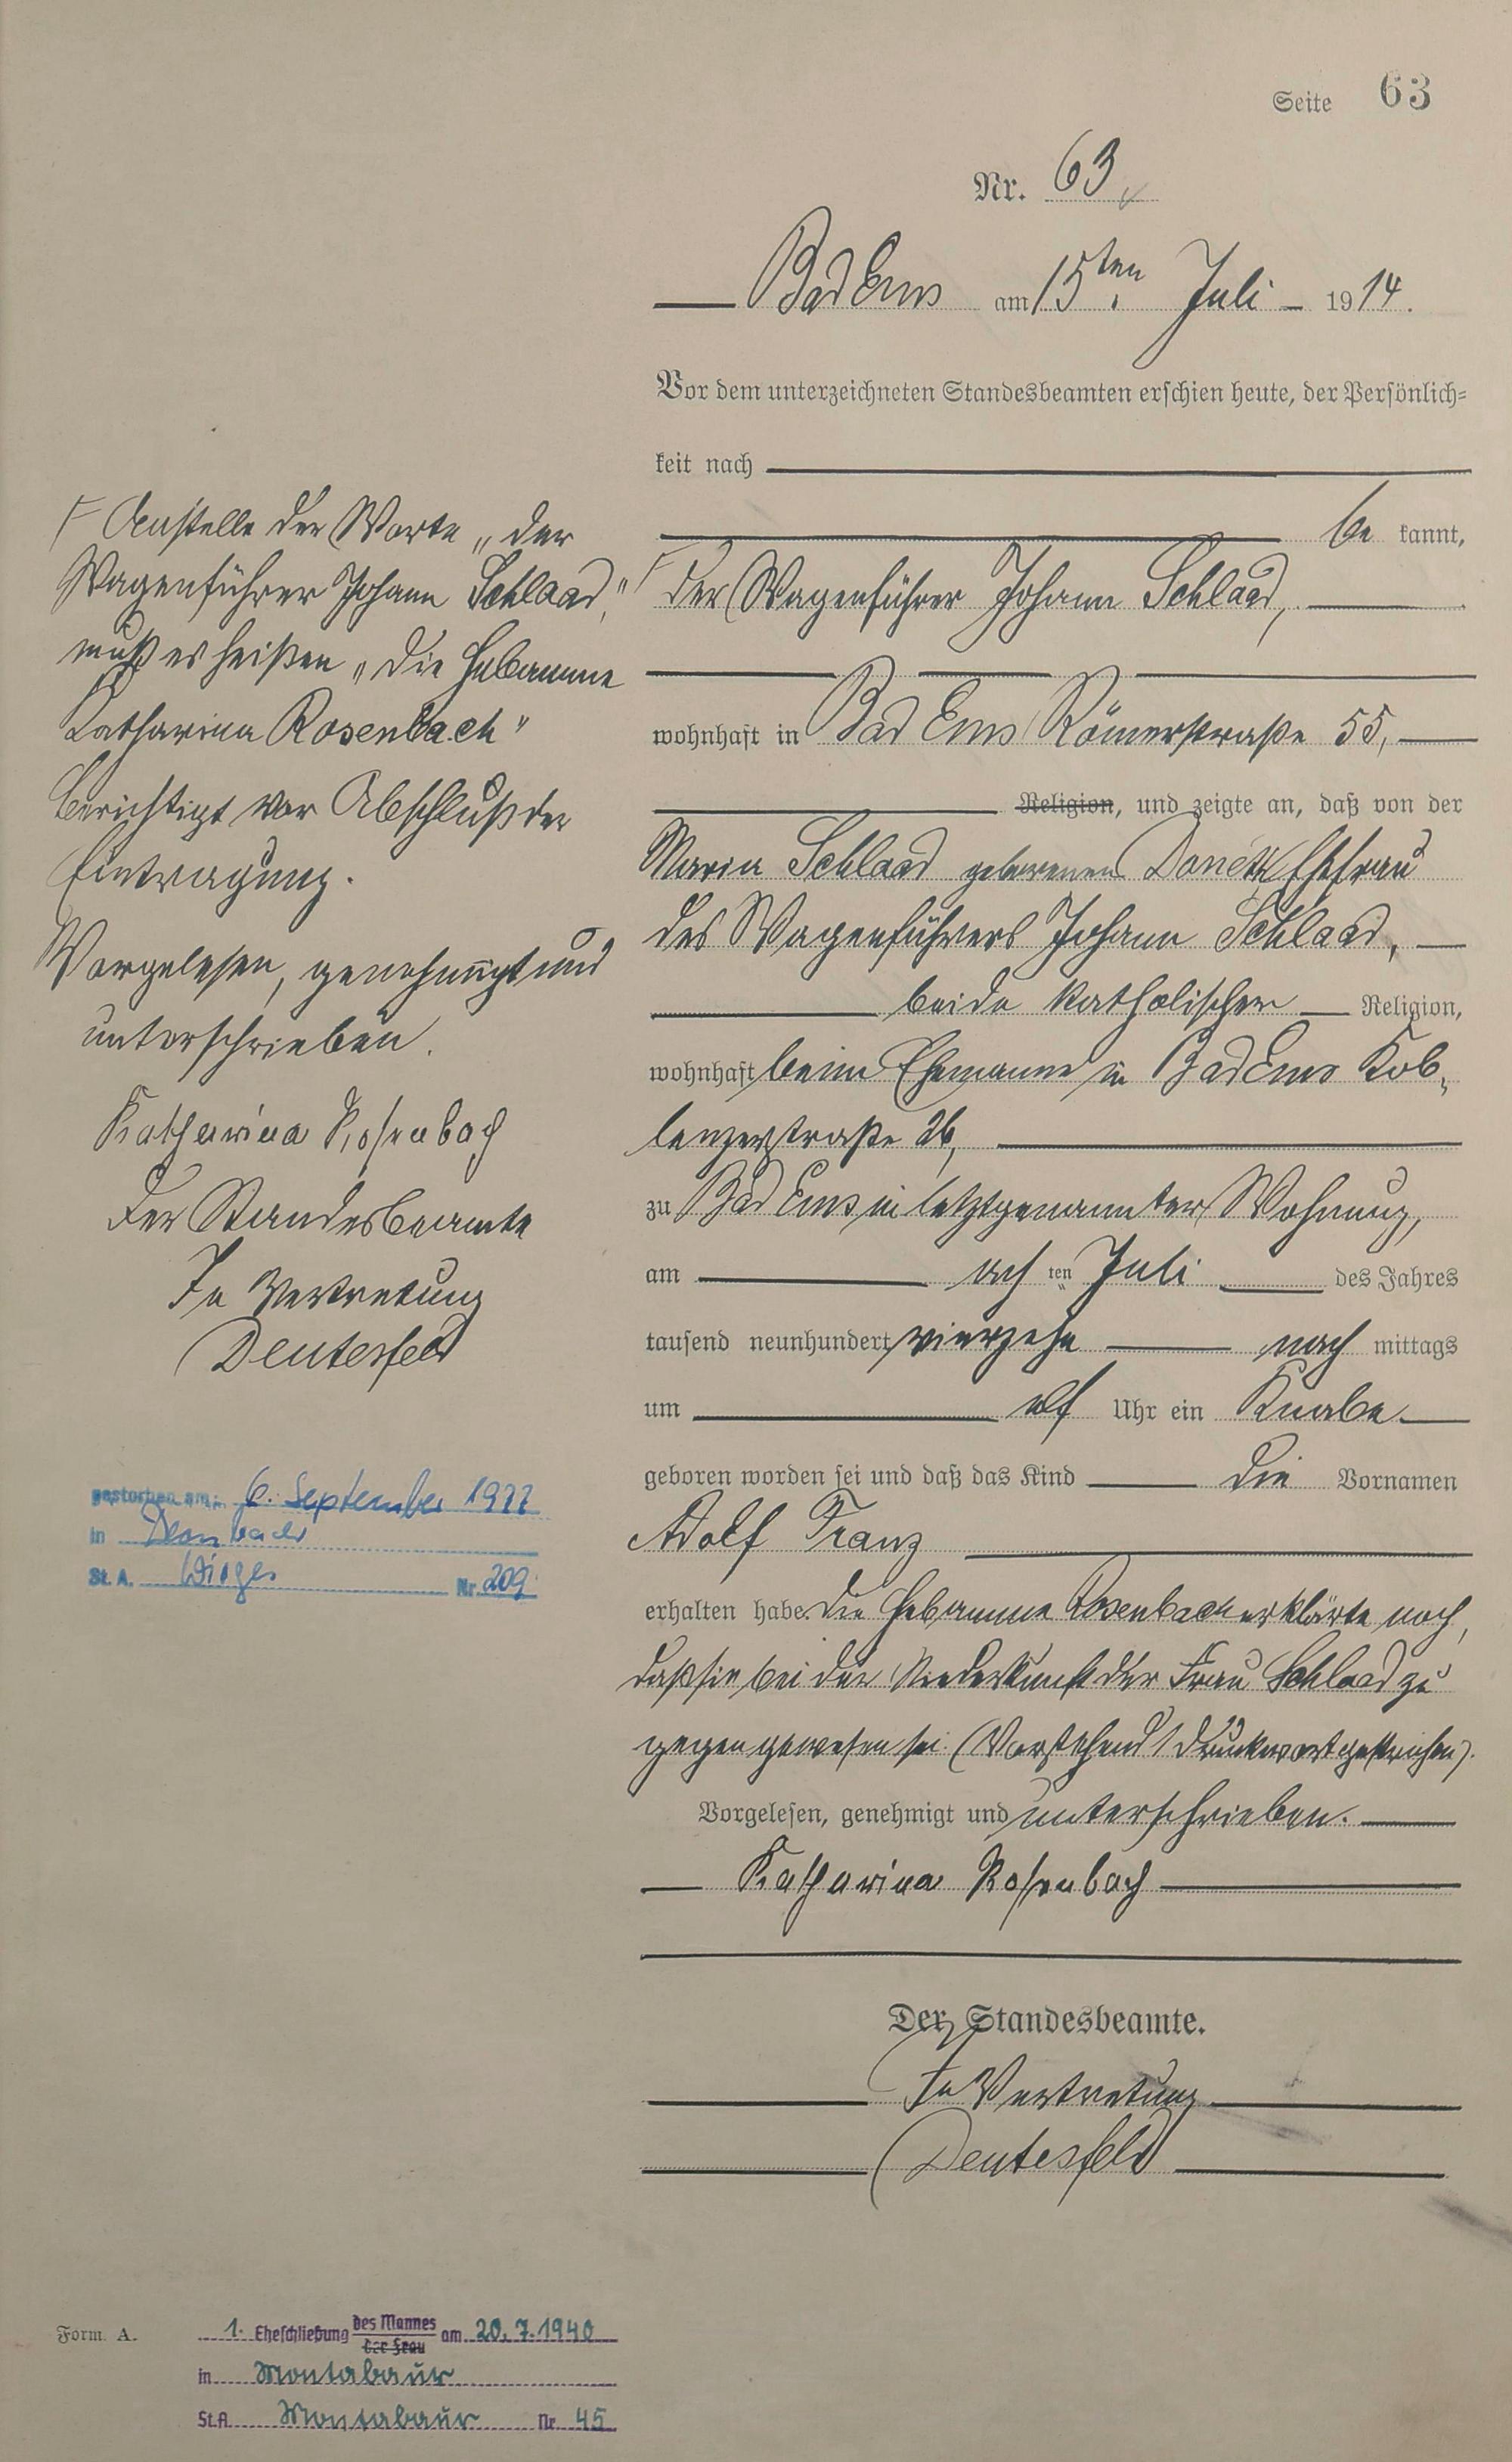 Seite 63
Nr. 63
Bad Ems am 15ten Juli 1914.
Vor dem unterzeichneten Standesbeamten erschien heute, der Persönlich=
keit nach
be kannt,
der Wagenführer Johann Schlaad,
wohnhaft in Bad Ems Römerstraße 55,
Religion, und zeigte an, daß von der
Maria Schlaad geborenen Ehefrau
des Wagenführers Johann Schlaad,
beide katholischer Religion,
wohnhaft beim Ehemanne in Bad Ems Kob-
lenzerstraße 26,
zu Bad Ems in letztgenannter Wohnung,
am acht ten Juli des Jahres
tausend neunhundert vierzehn nach mittags
um elf Uhr ein Knabe
geboren worden sei und daß das Kind die Vornamen
Adolf Franz
erhalten habe. Die Hebamme Rosenbach erklärte noch,
daß sie bei der Niederkunft der Frau Schlaad zu
gegen gewesen sei. (Vorstehend 1 Druckwort gestrichen).
Vorgelesen, genehmigt und unterschrieben.
Katharina Rosenbach
Der Standesbeamte.
In Vertretung
Deutesfeld
Anstelle der Worte „der
Wagenführer Johann Schlaad,"
muß es heißen „die Hebamme
Katharina Rosenbach"
Berichtigt vor Abschluß der
Eintragung.
Vorgelesen, genehmigt und
unterschrieben.
Katharina Rosenbach
Der Standesbeamte
In Vertretung
Deutesfeld
gestorben am: 6. September 1977
in Dernbach
St. A. Wirges Nr. 209
Form. A.
1. Eheschließung des Mannes der Frau am 20.7.1940
in Montabaur
St.A. Montabaur Nr. 45